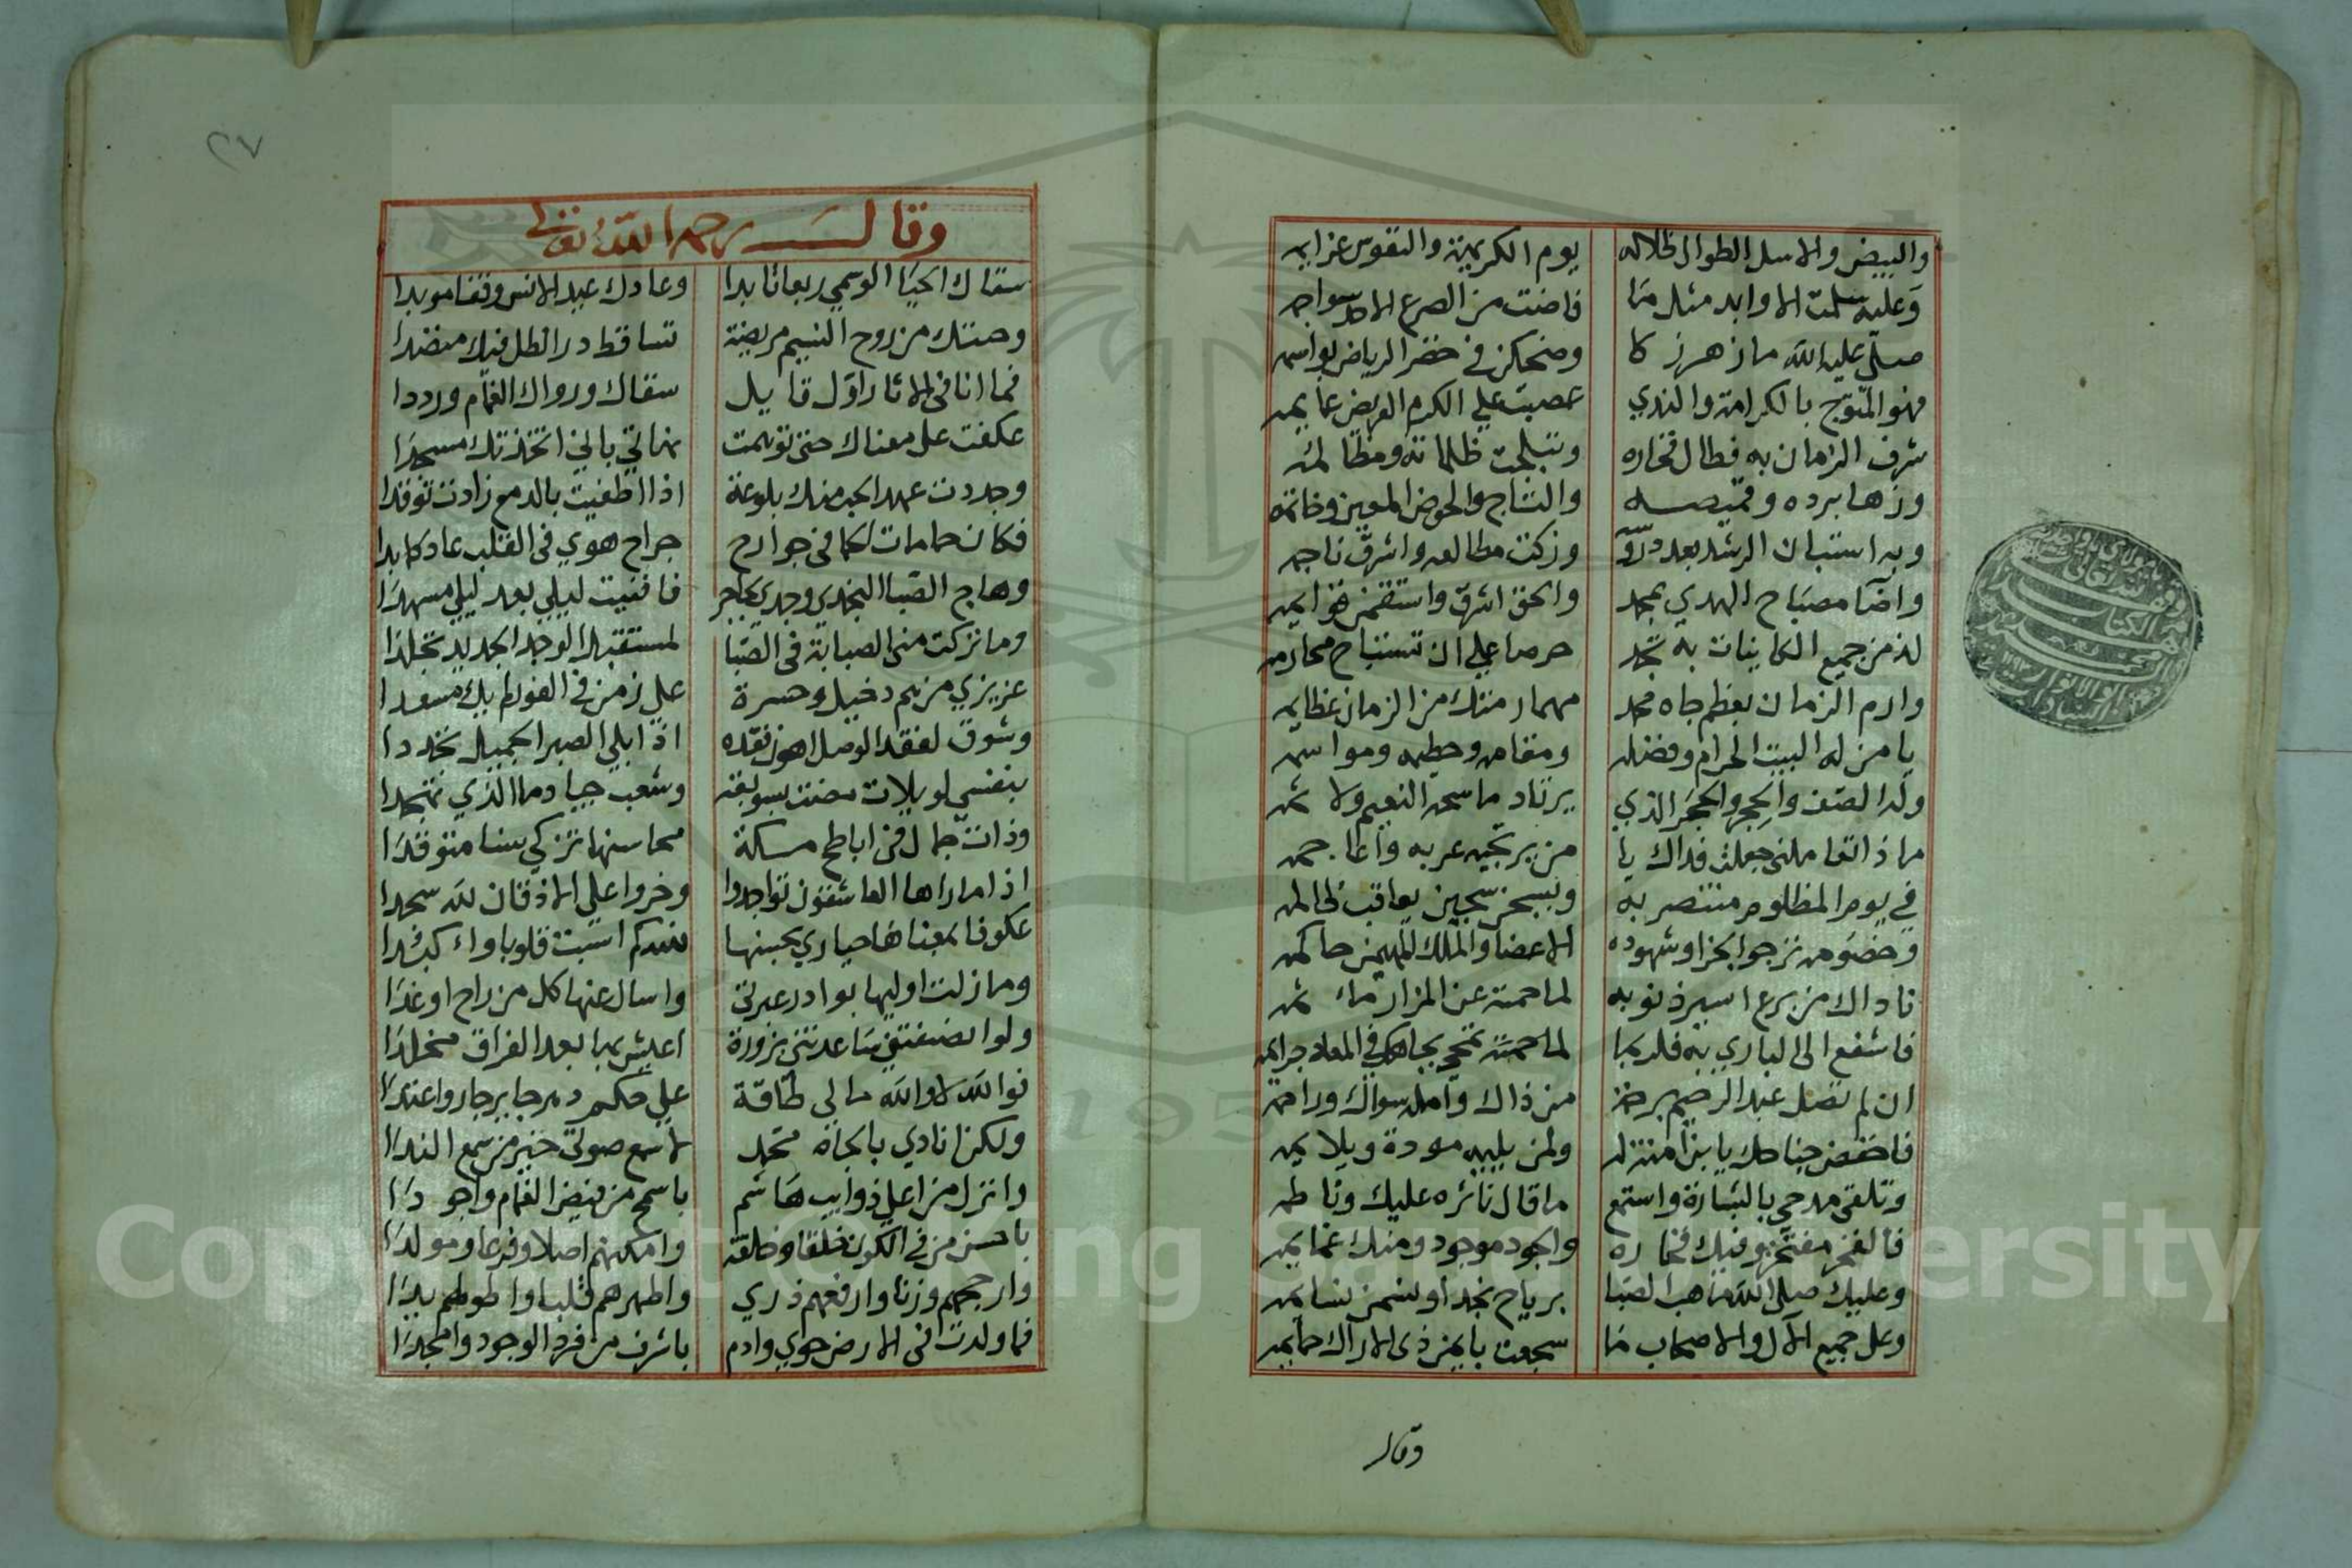 والبيض والاسل الطوال ظلاله يوم الكريهة والنفوس غزايه
وعليه سلمت الاوابد مثل ما فاضت من الصرع الاحد سواجه
صلى عليه الله ما زهرز كا وضحكن في خضر الرياض بواسه
فهو المتوج بالكرامة والندي عصبت علي الكرم العريض عمايمه
شرف الزمان به فطال فخاره وتبلجت ظلماته ومظالمه
وزها برده وقميصه والتاج والحوض المعين وخاتمه
وبه استبان الرشد بعد وزكت مطالعه واشرق ناجمه
واضآ مصباح الهدي بمحمد والحق اشرق واستقمن قوايمه
لذ من جميع الكاينات به تجد حرصا علي ان تستباح محارمه
وارم الزمان بعظم جاه محمد مهما رمتك من الزمان عظايمه
يا من له البيت الحرام وفضله ومقامه وحطيمه ومواسمه
وله الصفا والحجر والحجر الذي يرتاد ماسحه النعيم ولاثمه
ماذا تعاملني جعلت فداك يا من يرتجيه عربه واعاجمه
في يوم المظلوم منتصر به وبسجن سجين يعاقب ظالمه
وخضومه نرجوا الجزا وشهوده الاعضآ والملك المهيمن حاكمه
ناداك من برع اسير ذنوبه
فاشفع الي الباري به فلربما تمحي بجاهك في المعاد جرايمه
ان لم تصل عبد الرحيم برحمة من ذاك وآمله سواك وراحمه
فاخفض جناحك يا بن آمنة له ولمن يليه مودة ويلايمه
وتلقي مدحي بالبشارة واستمع ما قال ناثره عليك وناظمه
فالفخر مفتخر وفيك فخاره والجود موجود ومنك غمايمه
وعليك صلي الله ما هب الصبا برياح نجد او نسمن نسايمه
وعلي جميع الآل والاصحاب ما سجعت بايمن ذي الاراك حمايمه
وقال
وقال رحمه الله تعالي
سقاك الحيا الوسمي ربعا تابدا وعادك عيد الانس وقفا موبدا
وحنتك من روح النسيم مريضة تساقط در الطل فيك منضدا
فما انا في الاثار اول قايل سقاك ورواك الغمام ورددا
عكفت علي مغناك حتي توهمت نهاتي باني اتخذتك مسجدا
وجددت عهد الحب منك بلوعة اذا اطفيت بالدمع زادت توقدا
فكان حمامات الحما في جوارح جراح هوي في القلب عاد كما بدا
وهاج الصبا النجدي وجدي بحاجر فافنيت ليلي بعد ليلي مسهدا
وما تركت مني الصبابة في الصبا لمستقبل الوجد الجديد تجلدا
عزيزي من هم دخيل وحسرة علي زمن في الغور لم يك مسعدا
وشوق لفقد الوصل اهون فقده اذا ابلي الصبر الجميل تجددا
بنفسي لويلات مضت بسويقة وشعب جياد ما الذي تهجدا
وذات جمال في اباطح مكة محاسنها تزكي سنا متوقدا
اذا ما راها العاشقون تواجدوا وخروا علي الاذقان لله سجدا
عكوفا بمغناها حياري بحبها فلله كم اسبت قلوبا واكبدا
وما زلت اوليها بوادر عبرتي واسال عنها كل من راح او غدا
ولو انصفتني ساعدتني بزورة اعيش بها بعد الفراق مخلدا
فوالله لا والله ما لي طاقة علي حكم دهر جايرجار واعتدا
ولكن انادي بالجاه محمد لاسمع صوتي خير من سمع الندا
وانزل من اعلي ذوايب هاشم باسمح من فيض الغمام واجودا
باحسن من في الكون خلقا وخلقة وامكنهم اصلا وفرعا ومولدا
وارجحهم وزنا وارفعهم ذري واطهرهم قلبا واطولهم يدا
فما ولدت في الارض حوي وادم باشرف من فرد الوجود وامجدا